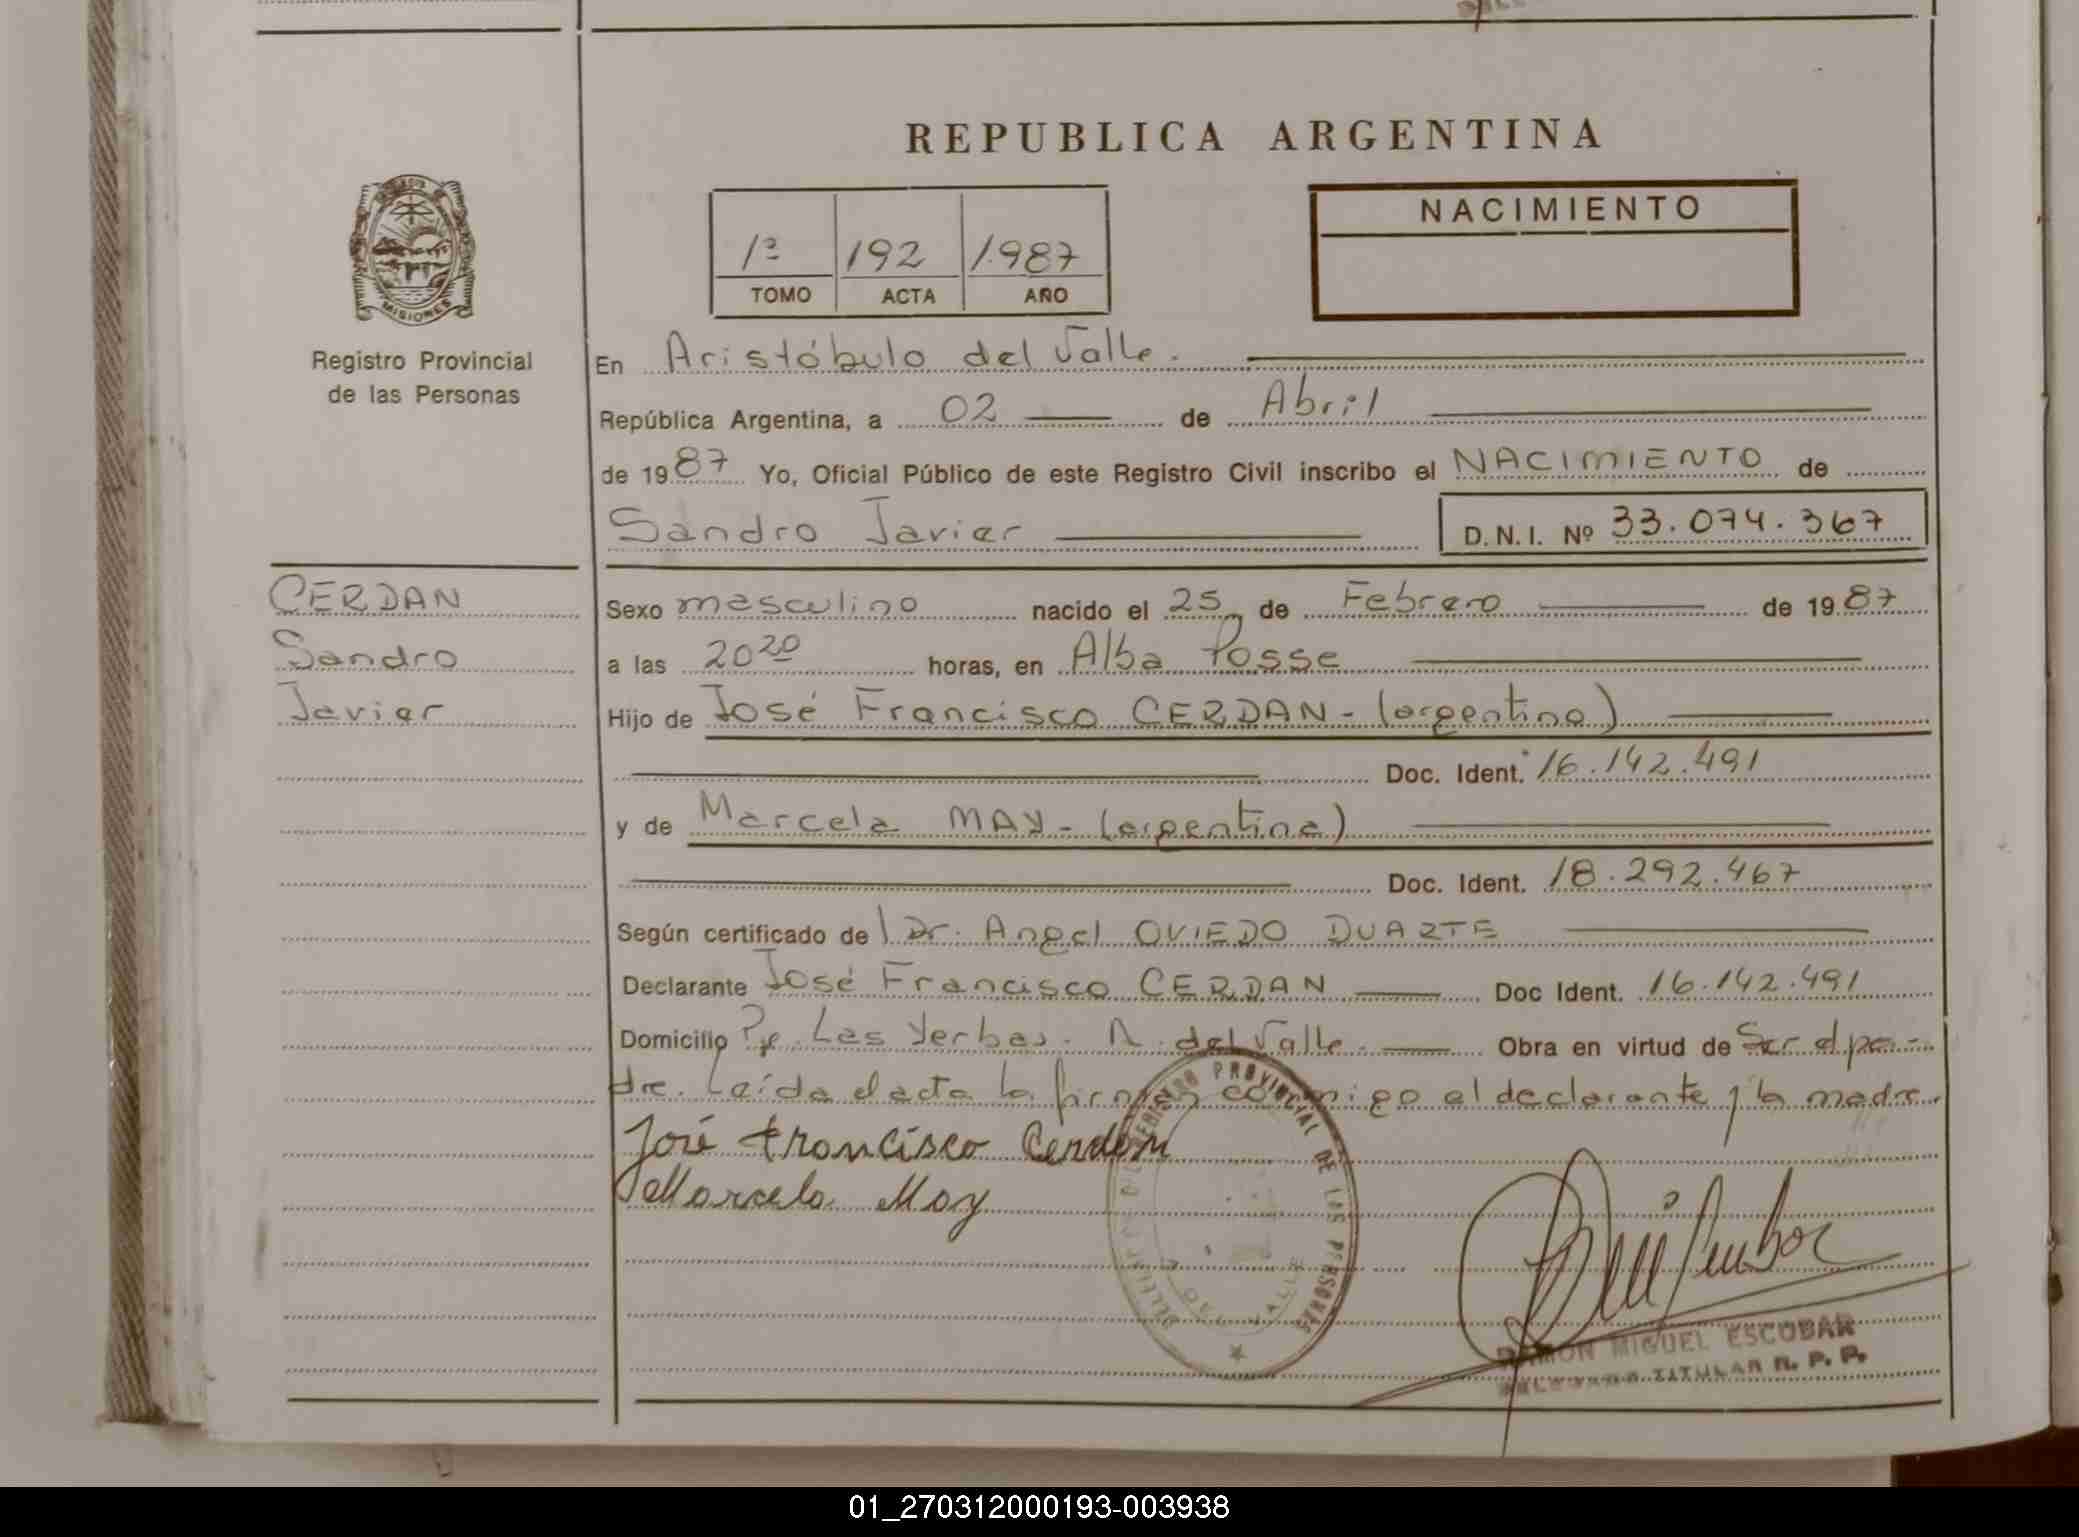 REPUBLICA ARGENTINA
MISIONES
Registro Provincial
de las Personas
1ª 192 1.987
TOMO ACTA AÑO
NACIMIENTO
En Aristóbulo del Valle.
República Argentina, a 02 de Abril
de 1987 Yo, Oficial Público de este Registro Civil inscribo el NACIMIENTO de
Sandro Javier D.N.I. Nº 33.074.367
CERDAN
Sandro
Javier
Sexo masculino nacido el 25 de Febrero de 1987
a las 20 20 horas, en Alba Posse
Hijo de José Francisco CERDAN - (argentino)
Doc. Ident. 16.142.491
y de Marcela MAY - (argentina)
Doc. Ident. 18.292.467
Según certificado de l Dr. Angel OVIEDO DUARTE
Declarante José Francisco CERDAN Doc Ident. 16.142.491
Domicilio Las Yerbas. A. del Valle. Obra en virtud de Ser el pa-
dre. Leída el acta la firman conmigo el declarante y la madre.
José Francisco Cerdan
Marcela May
REGISTRO PROVINCIAL DE LAS PERSONAS
DEL VALLE
RAMON MIGUEL ESCOBAR
DELEGADO TITULAR R. P. P.
01_270312000193-003938